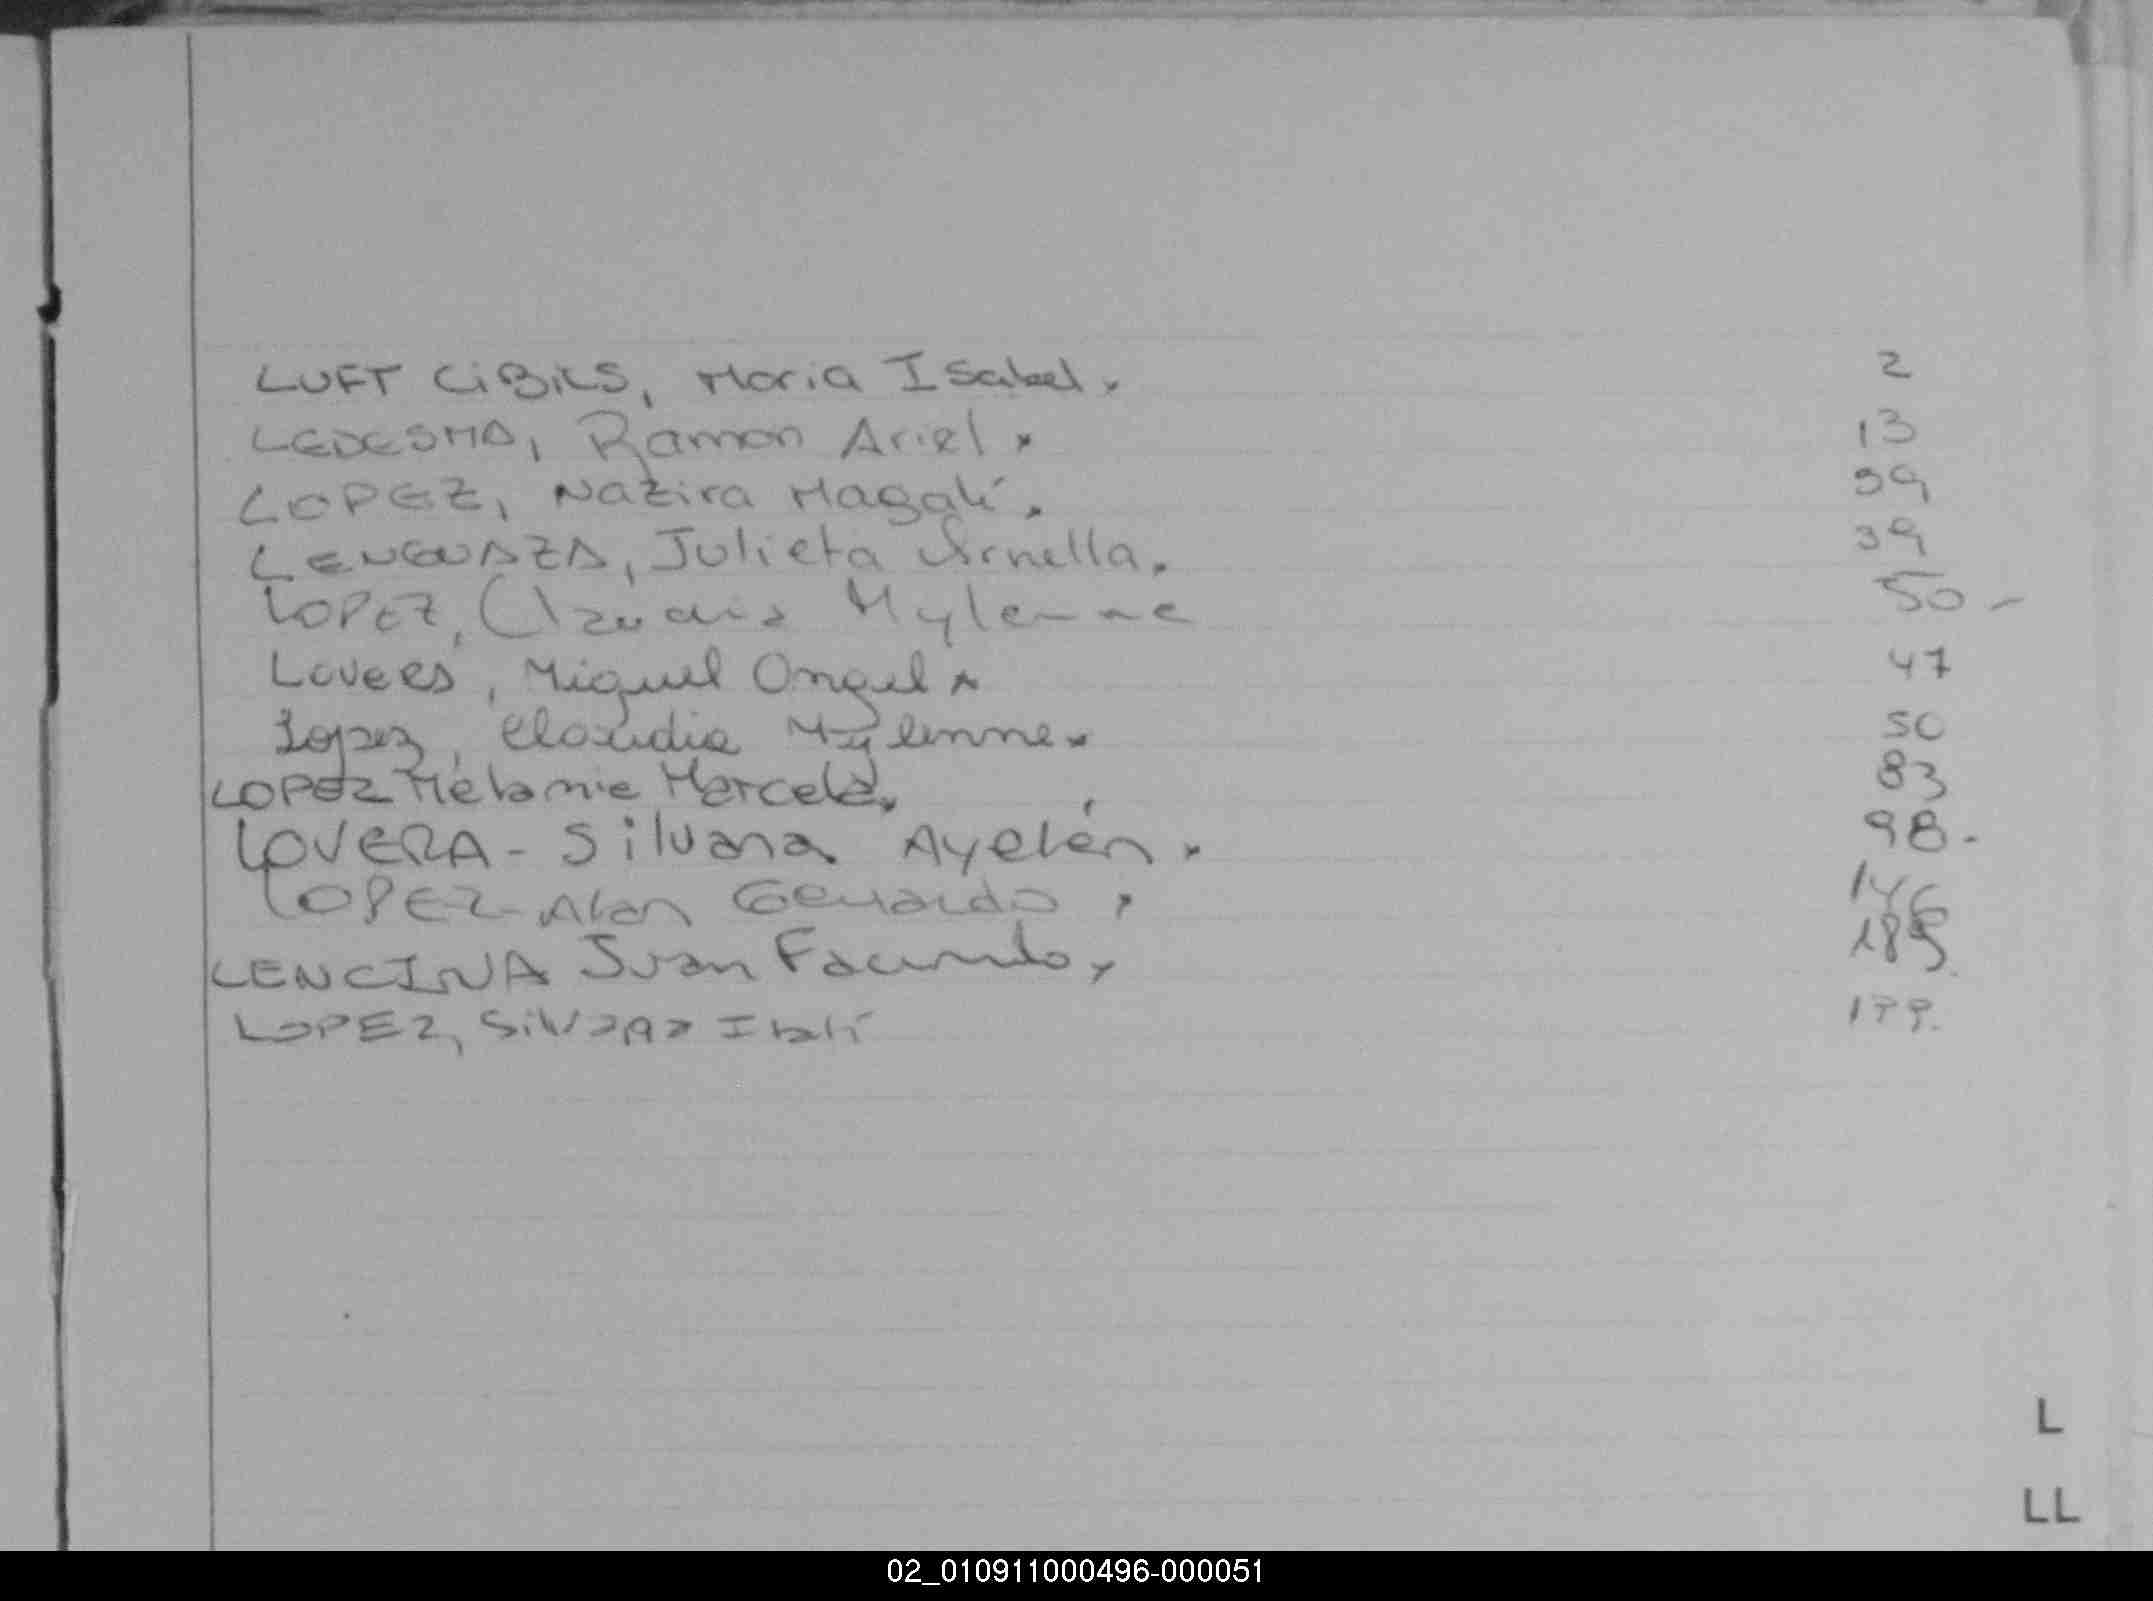 LUFT CiBiLS, Maria Isabel. 2
LEDESMA, Ramon Ariel. 13
LOPEZ, Nazira Magalí. 39
LENGUAZA, Julieta Arnella. 39
LOPEZ, Claudia Mylenne 50 -
Lovera, Miguel Angel 47
Lopez, Claudia Mylenne. 50
LOPEZ Melanie Marcela. 83
LOVERA - Silvana Ayelén. 98.
LOPEZ - Alan Gerardo. 146
LENCINA Juan Facundo, 185
LOPEZ, Silvana Itatí 199.
L
LL
02_010911000496-000051